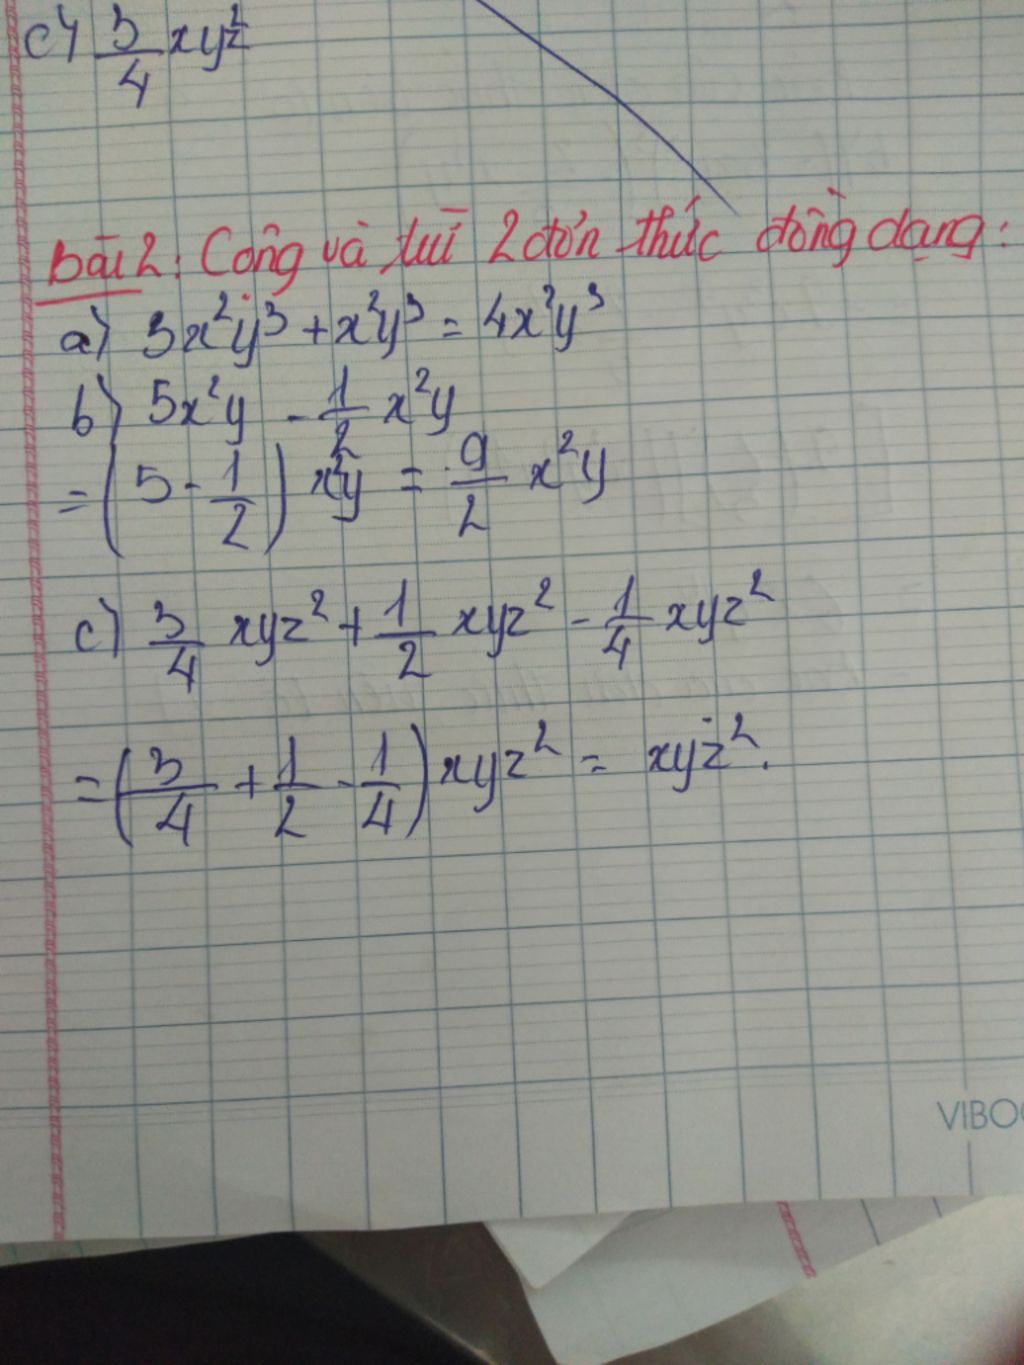 c) 3/4 xyz²
Bài 2: Cộng và trừ 2 đơn thức đồng dạng:
a) 3x²y³ + x²y³ = 4x²y³
b) 5x²y - 1/2 x²y
= (5 - 1/2) x²y = 9/2 x²y
c) 3/4 xyz² + 1/2 xyz² - 1/4 xyz²
= (3/4 + 1/2 - 1/4) xyz² = xyz².